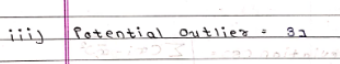 iii) Potential outlier = 33